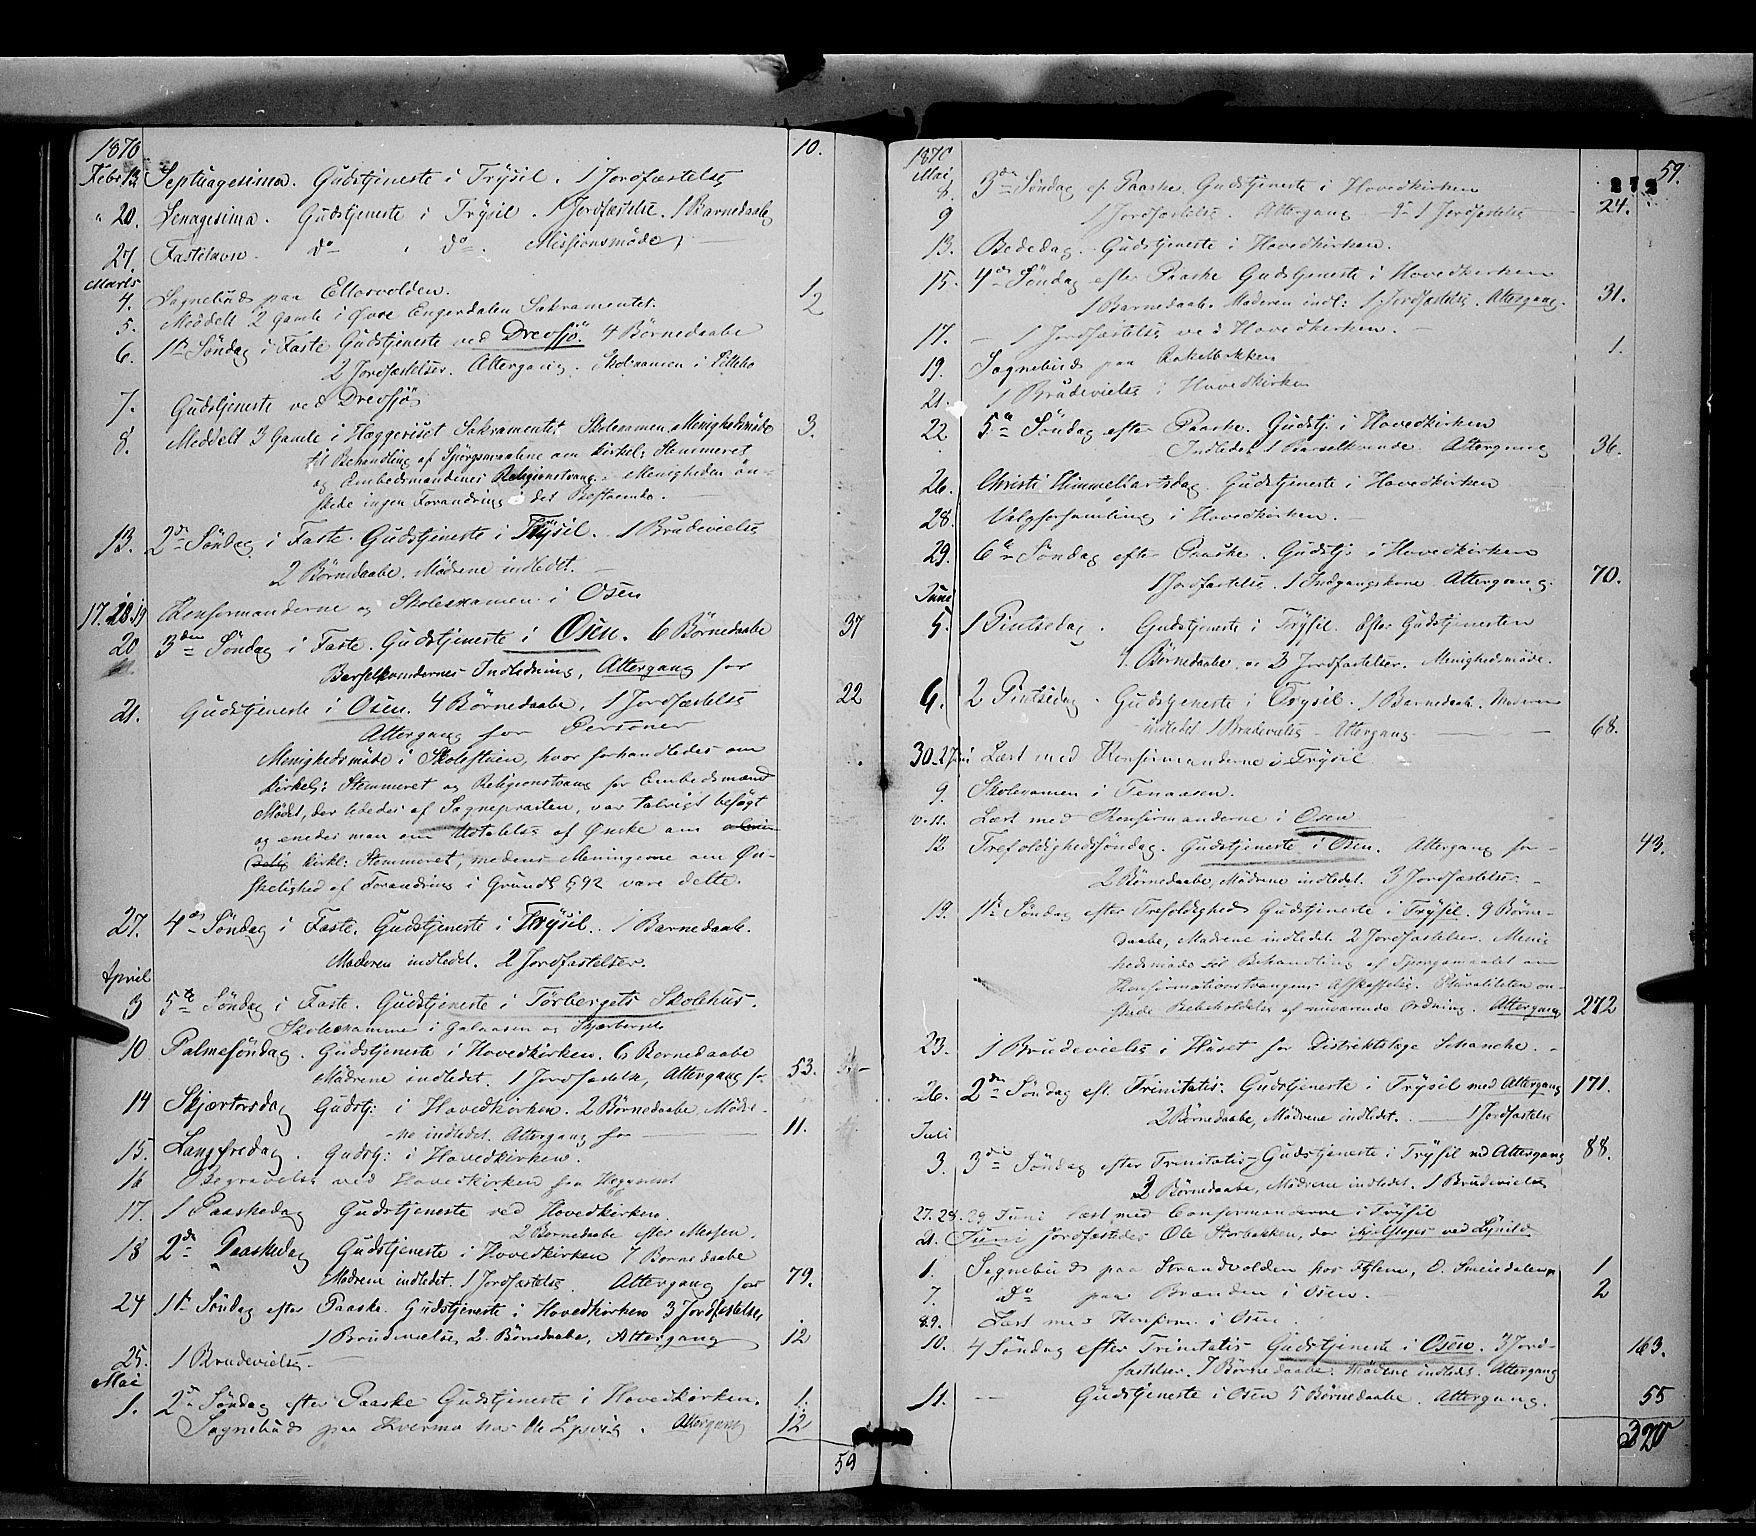 1870 10.
Febr 13. Septuagesima. Gudstjeneste i Trysil. 1 Jordfæstelse
" 20. Sexagesima. Gudstjeneste i Trysil. 1 Jordfæstelse. 1 Barnedaab
27. Fastelavn. do do. Missionsmøde
Marts
4. Sognebud paa Ellosvolden. 1
5. Meddelt 2 Gamle i Øvre Engerdalen Sakramentet. 2
6. 1ste Søndag i Faste Gudstjeneste ved Drevsjö. 4 Børnedaabe
2 Jordfæstelser. Altergang. Skolexamen i
7. Gudstjeneste ved Drevsjø
8. Meddelt 3 Gamle i Hæggeriset Sakramentet. Skolexamen. Menighedsmøde 3.
til Behandling af Spørgsmaalene om kirkel: Stemmeret
og Embedsmændenes Religionstvang. Menigheden øn-
skede ingen Forandring i det Bestaaende.
13. 2den Søndag i Faste. Gudstjeneste i Trysil. 1 Brudevielse
2 Børnedaabe. Mødrene indledet.
17. 18. 19 Konfirmanderne og Skolexamen i Osen
20 3den Søndag i Faste. Gudstjeneste i Osen. 6 Børnedaabe 37
Barselkvindernes Indledning, Altergang for
21. Gudstjeneste i Osen. 4 Børnedaabe, 1 Jordfæstelse 22
Altergang for Personer
Menighedsmøde i Skolestuen, hvor forhandledes om
kirkel: Stemmeret og Religionstvang for Embedsmænd
Mødet, der lededes af Sognepræsten, var talrigt besøgt
og enedes man om Udtalelse af Ønske om
kirkl: Stemmeret, medens Meningerne om Øn-
skelighed af Forandring i Grundl. § 92 vare delte.
27. 4de Søndag i Faste. Gudstjeneste i Trysil. 1 Barnedaab.
Moderen indledet. 2 Jordfæstelser.
April
3 5te Søndag i Faste. Gudstjeneste i Torbergets Skolehus.
Skolexamen i Galaasen og Skjærberget
10 Palmesøndag. Gudstjeneste i Hovedkirken. 6 Børnedaabe
Mødrene indledet. 1 Jordfæstelse, Altergang for 53.
14 Skjærtorsdag Gudstj: i Hovedkirken. 2 Børnedaabe. Mødre-
ne indledet. Altergang for 11.
15. Langfredag. Gudstj: i Hovedkirken.
16 Begravelse ved Hovedkirken fra
17. 1 Paaskedag Gudstjeneste ved Hovedkirken.
2 Børnedaabe efter Messen.
18 2den Paaskedag Gudstjeneste i Hovedkirken 7 Børnedaabe
Mødrene indledet. 1 Jordfæstelse. Altergang for 79.
24 1ste Søndag efter Paaske. Gudstjeneste i Hovedkirken 3 Jordfæstelser
1 Brudevielse, 2 Børnedaabe, Altergang 12
25. 1 Brudevielse
Mai
1. 2den Søndag efter Paaske Gudstjeneste i Hovedkirken. 1.
Sognebud paa Kverma hos Ole. Altergang 12
59
1870 59.
272
Mai
8. 3die Søndag ef. Paaske. Gudstjeneste i Hovedkirken
1 Jordfæstelse. Altergang 24.
9 1 Jordfæstelse
13. Bededag. Gudstjeneste i Hovedkirken.
15. 4de Søndag efter Paaske Gudstjeneste i Hovedkirken
1 Barnedaab. Moderen indl: 1 Jordfæstelse. Altergang. 31.
17. 1 Jordfæstelse ved Hovedkirken.
19. Sognebud paa Rakelbakken 1.
21. 1 Brudevielse i Hovedkirken
22 5te Søndag efter Paaske. Gudstj. i Hovedkirken
Indledet 1 Barselkvinde. Altergang 36.
26. Christi Himmelfartsdag. Gudstjeneste i Hovedkirken
28. Valgforsamling i Hovedkirken.
29. 6te Søndag efter Paaske. Gudstj: i Hovedkirken
1 Jordfæstelse. 1 Indgangskone. Altergang. 70.
Juni
5. 1 Pintsedag. Gudstjeneste i Trysil. Efter Gudstjenesten
9. Børnedaabe, og 3 Jordfæstelser. Menighedsmøde.
6. 2 Pintsedag. Gudstjeneste i Trysil. 1 Barnedaab. Moderen
indledet 1 Brudevielse. Altergang 68.
Læst med Konfirmanderne i Trysil
9. Skolexamen i Tenaasen.
10-11. Læst med Konfirmanderne i Osen
12 Trefoldighedssøndag. Gudstjeneste i Osen. Altergang for 43.
2 Børnedaabe, Mødrene indledet. 3 Jordfæstelser.
19. 1ste Søndag efter Trefoldighed Gudstjeneste i Trysil. 9 Børne-
daabe, Mødrene indledet. 2 Jordfæstelser. Menig-
hedsmøde til Behandling af Spørgsmaalet om
Konfirmationstvangens Afskaffelse. Pluraliteten øn-
skede Bibeholdelse af nuværende Ordning. Altergang 272
23. 1 Brudevielse i Huset for Distriktslæge Schanche.
26. 2den Søndag eft. Trinitatis. Gudstjeneste i Trysil med Altergang 171.
2 Børnedaabe, Mødrene indledet. 1 Jordfæstelse
Juli
3. 3die Søndag efter Trinitatis Gudstjeneste i Trysil med Altergang 88.
3 Børnedaabe, Mødrene indledet. 1 Brudevielse
27. 28. 29 Juni læst med Confirmanderne i Trysil
Juni Jordfæstedes Ole Storbakken, der ihjelsloges ved Lynild
1. Sognebud paa Strandvolden hos 1
7. Do paa Branden i Osen. 2
8.9. Læst med Konfirm. i Osen
10. 4 Søndag efter Trinitatis Gudstjeneste i Osen. 3 Jord- 163.
fæstelser. 7 Børnedaabe. Mødrene indledet. Altergang
11. Gudstjeneste i Osen 5 Børnedaabe. Altergang. 55
320